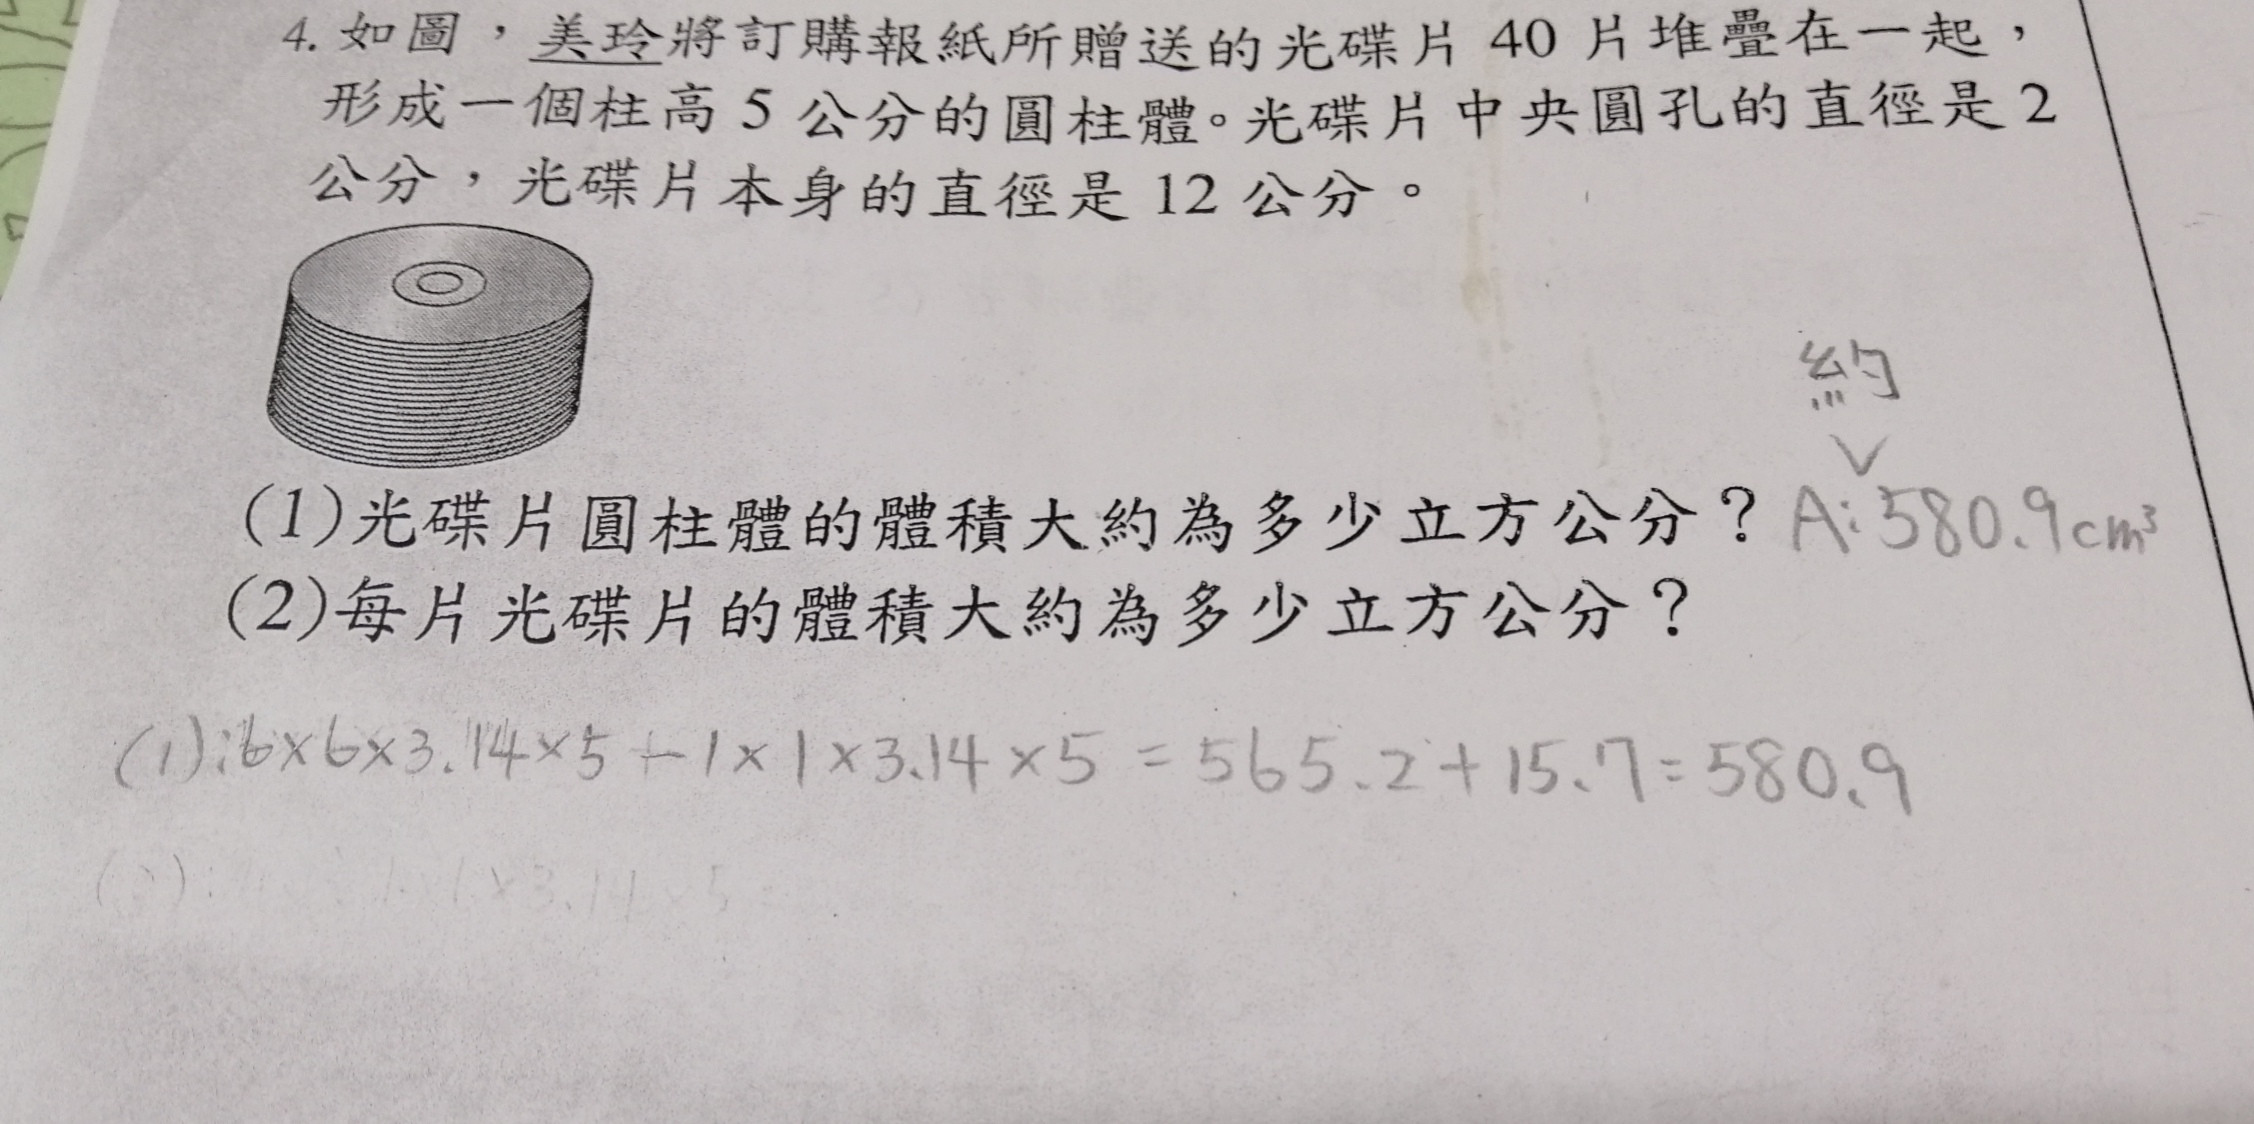 4. 如圖，美玲將訂購報紙所贈送的光碟片 40 片堆疊在一起，
形成一個柱高 5 公分的圓柱體。光碟片中央圓孔的直徑是 2
公分，光碟片本身的直徑是 12 公分。
約
(1)光碟片圓柱體的體積大約為多少立方公分？ A:580.9cm³
(2)每片光碟片的體積大約為多少立方公分？
(1):6×6×3.14×5+1×1×3.14×5=565.2+15.7=580.9